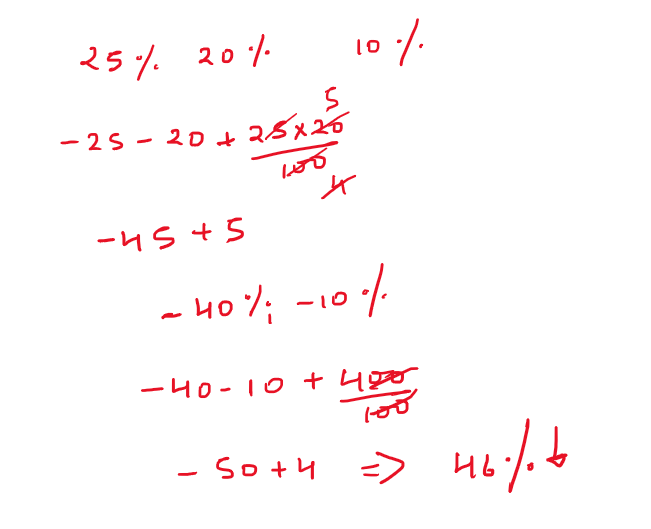 25% 20% 10%
5
-25 - 20 + 25×20
100
4
-45 + 5
-40%, -10%
-40 - 10 + 400
100
-50 + 4 => 46% ↓